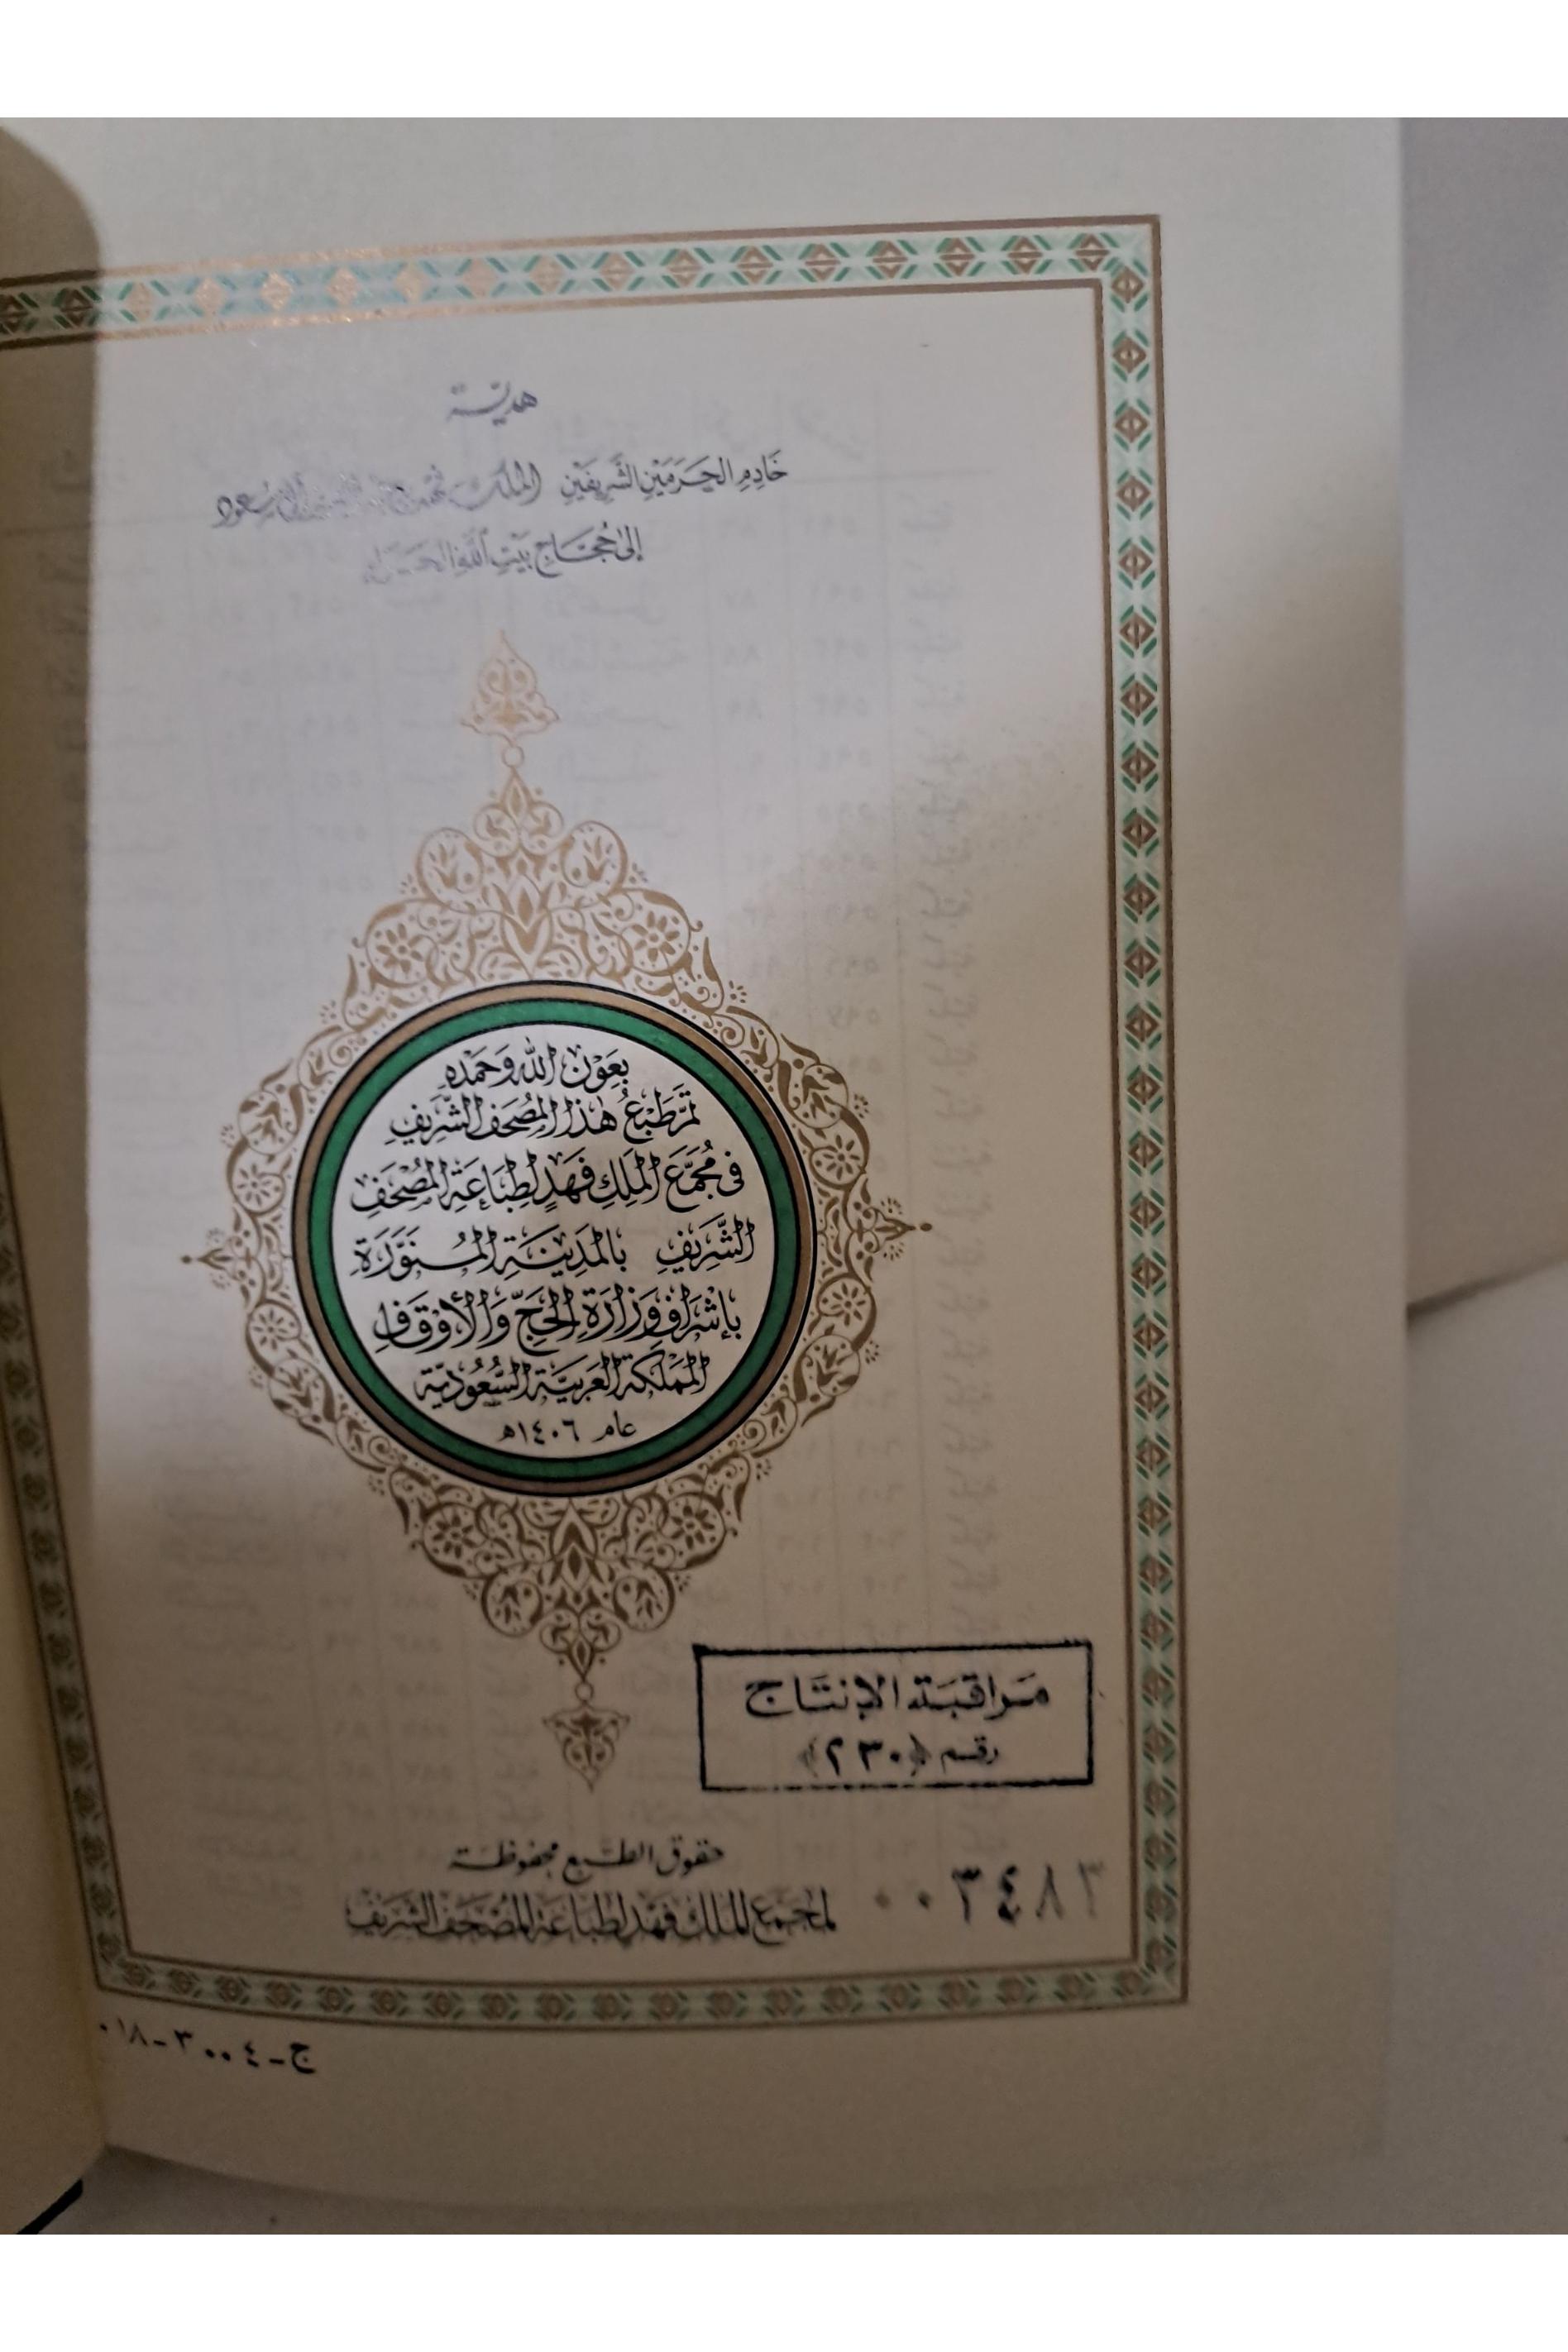 هديـة
خَادِمِ الحَرَمَيْنِ الشَّرِيفَيْنِ الملك فهد بن عبد العزيز آل سعود
إِلىٰ حُجَّاجِ بَيْتِ اللَّهِ الحَرَامِ
بِعَوْنِ اللَّهِ وَحَمْدِهِ
تَمَّ طَبْعُ هٰذَا المُصْحَفِ الشَّرِيفِ
فِى مُجَمَّعِ المَلِكِ فَهَدٍ لِطِبَاعَةِ المُصْحَفِ
الشَّرِيفِ بِالمَدِينَةِ المُنَوَّرَةِ
بِإشْرَافِ وَزَارَةِ الحَجِّ وَالأَوْقَافِ
المَمْلَكَةِ العَرَبِيَّةِ السُّعُودِيَّةِ
عام ١٤٠٦هـ
مَراقبَة الإنتَاج
رقم (٢٣٠)
حقوق الطبع محفوظة
لمجمع الملك فهد لطباعة المصحف الشريف
٠٠٣٤٨٣
ج-٤٠٠٣-١٨٠